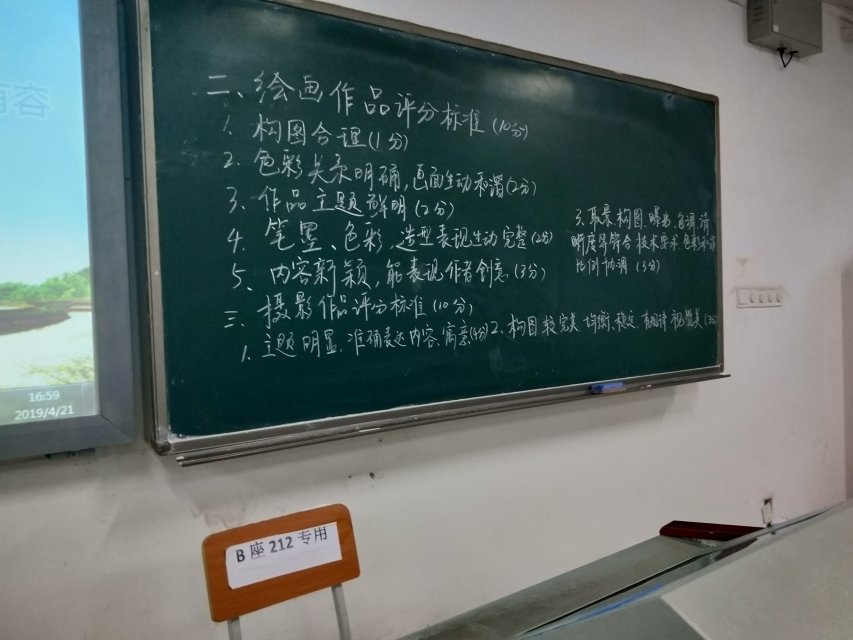 容
16:59
2019/4/21
二、绘画作品评分标准(10分)
1. 构图合理(1分)
2. 色彩关系明确,画面生动和谐(2分)
3. 作品主题鲜明(2分)
4. 笔墨、色彩,造型表现生动完整(2分)
5. 内容新颖,能表现作者创意.(3分)
三、摄影作品评分标准(10分)
1. 主题明显、准确表达内容、寓意(4分) 2、构图较完美 均衡、稳定 有规律 视觉美(3分)
3.取景、构图、曝光、色调、清
晰度等符合技术要求 色彩和谐
比例协调(3分)
B座212专用